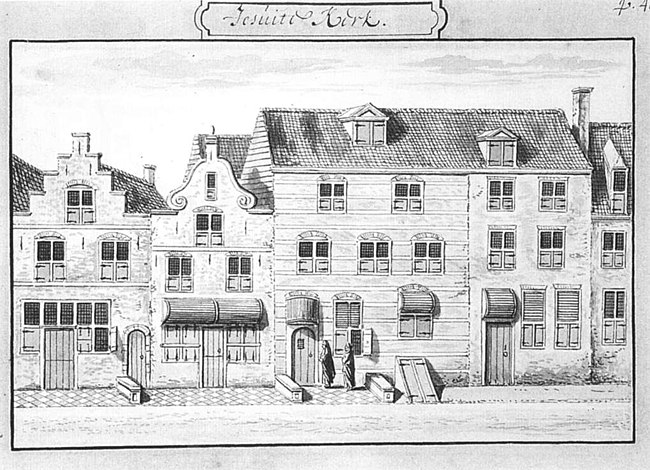 Jesuite Kerk.